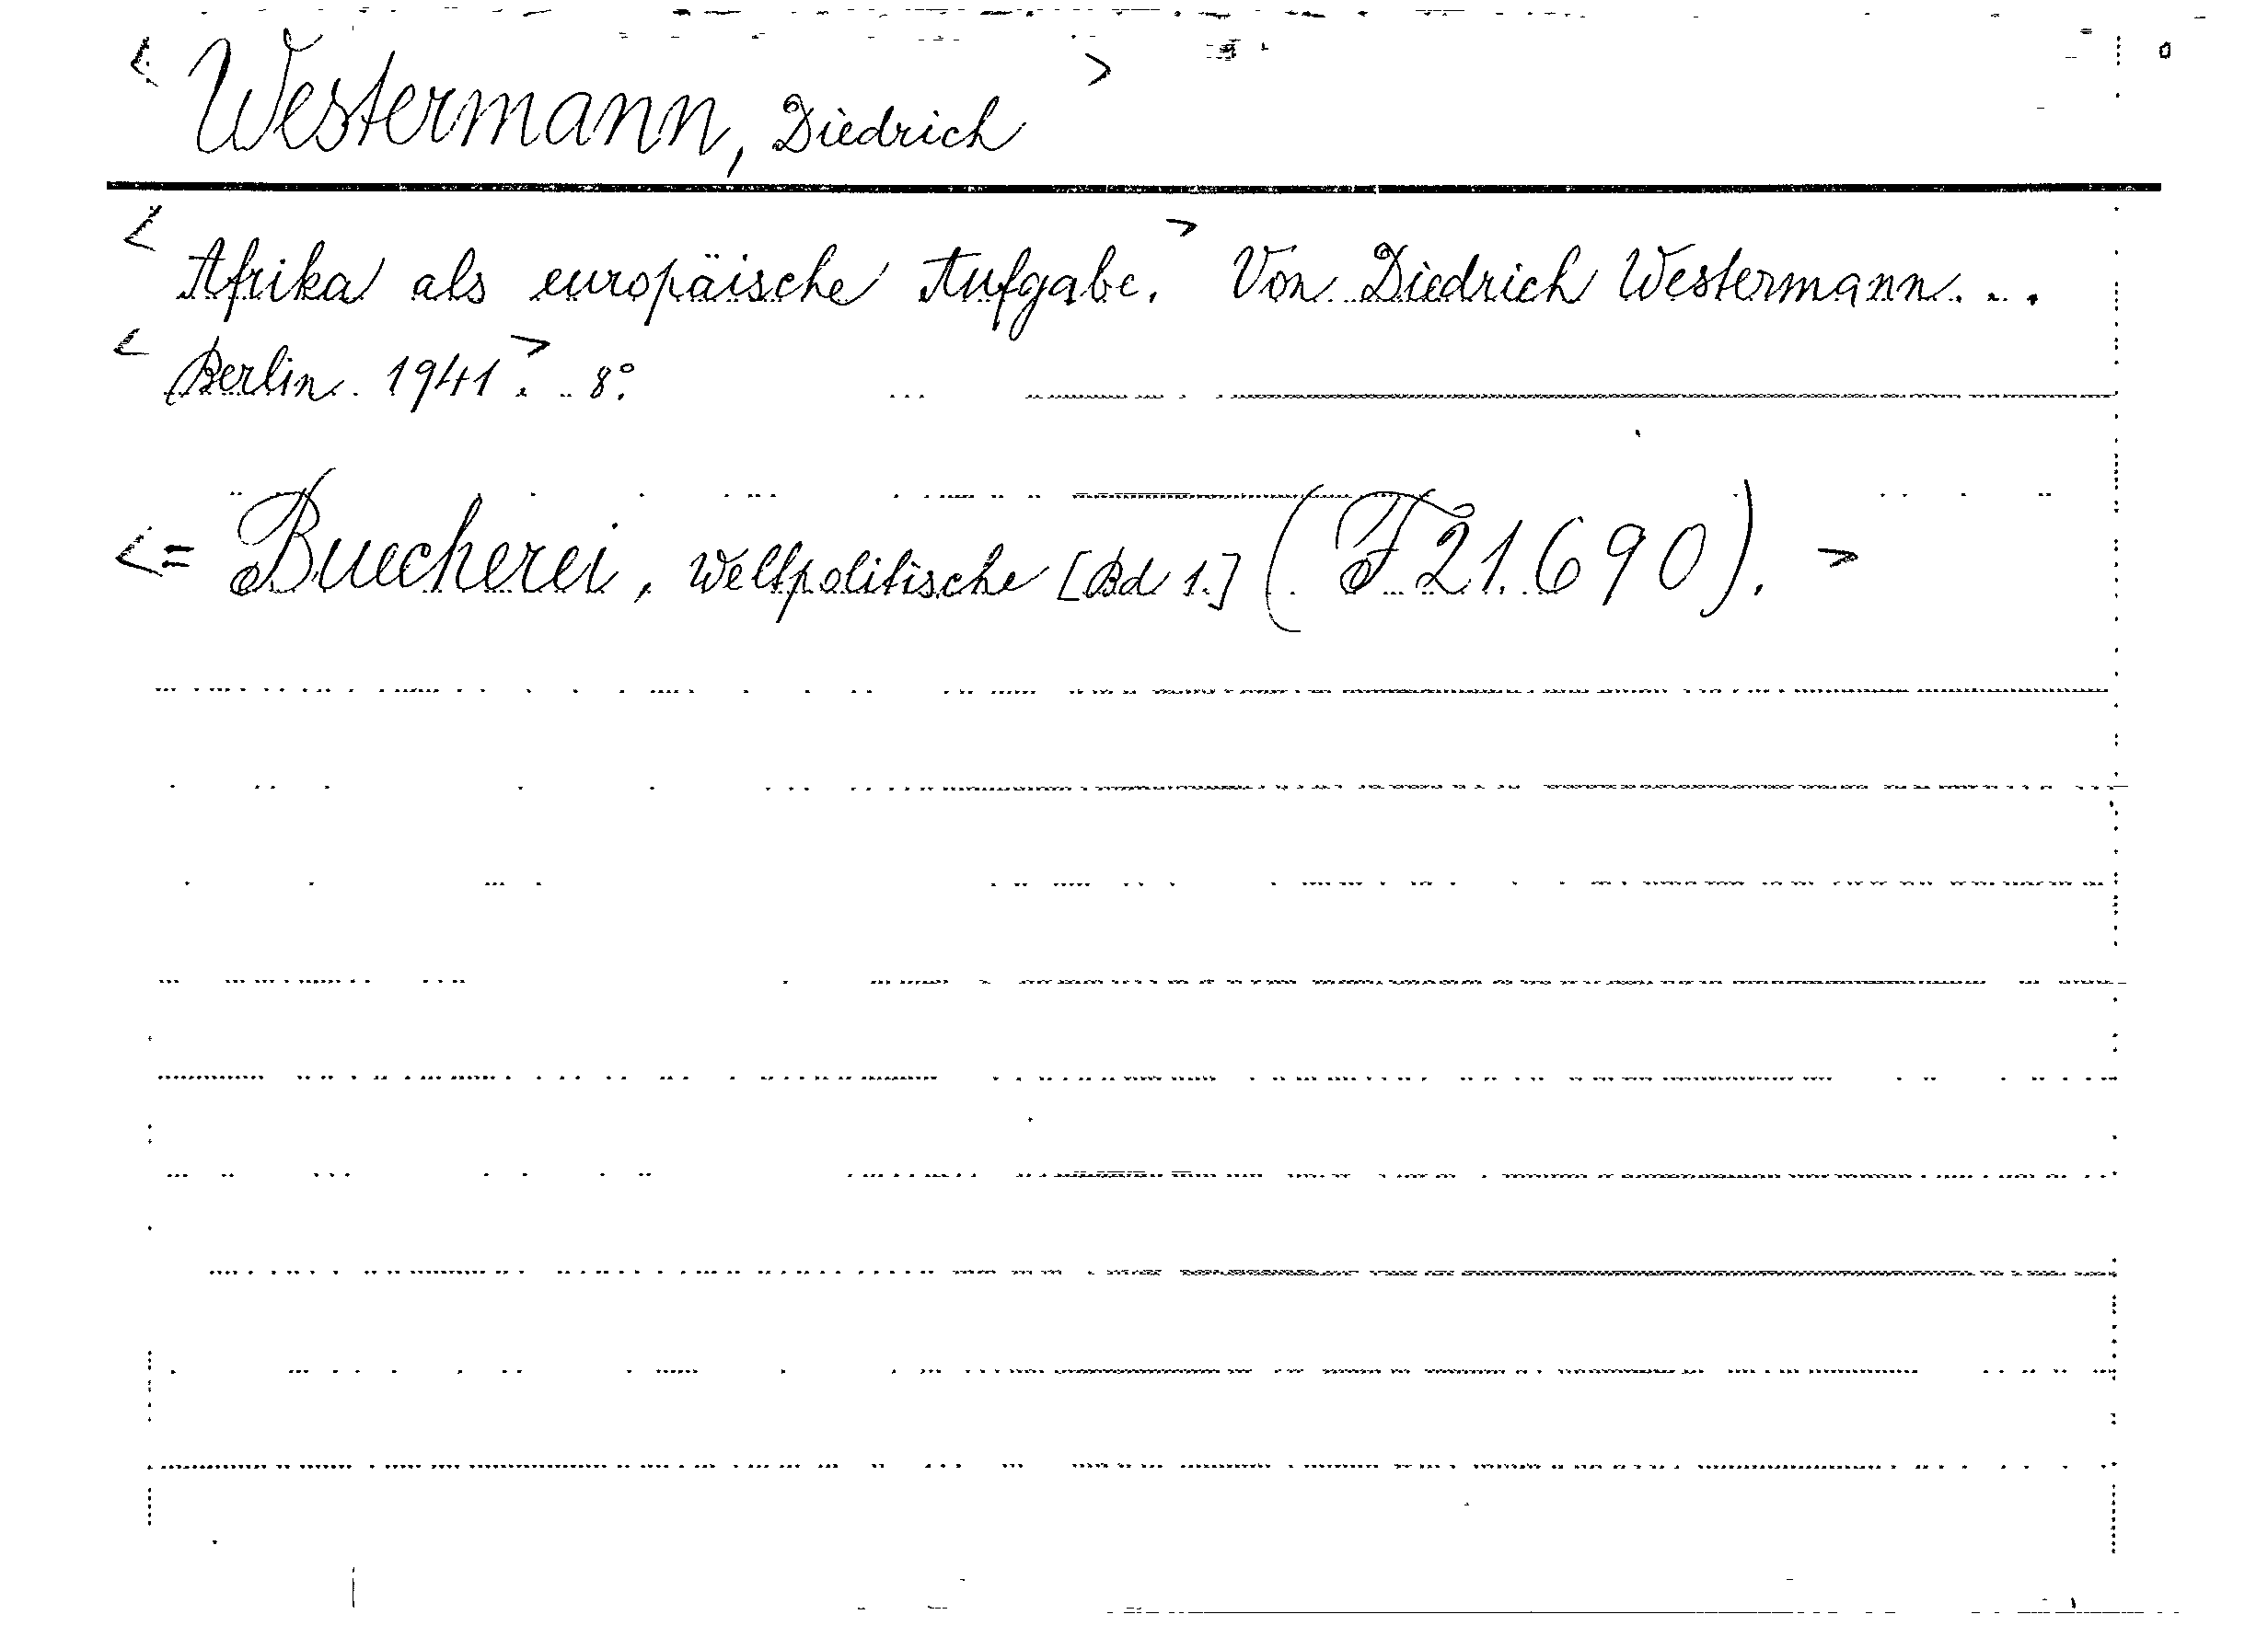 < Westermann, Diedrich >
< Afrika als europäische Aufgabe. > Von Diedrich Westermann...
< Berlin 1941. > 8°.
<= Buecherei, Weltpolitische [Bd 1.] (F 21.690). >